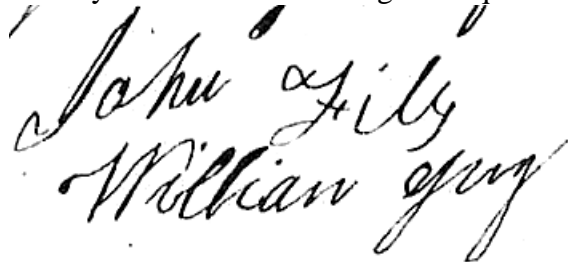 John Fily
William Guy